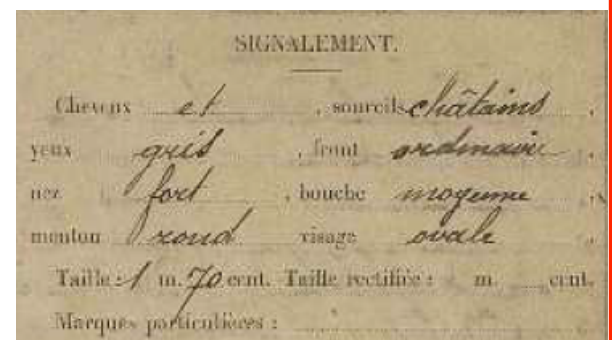 SIGNALEMENT.
Cheveux et , sourcils châtains .
yeux gris , front ordinaire .
nez fort , bouche moyenne .
menton rond visage ovale .
Taille : 1 m. 70 cent. Taille rectifiée : m. cent.
Marques particulières :